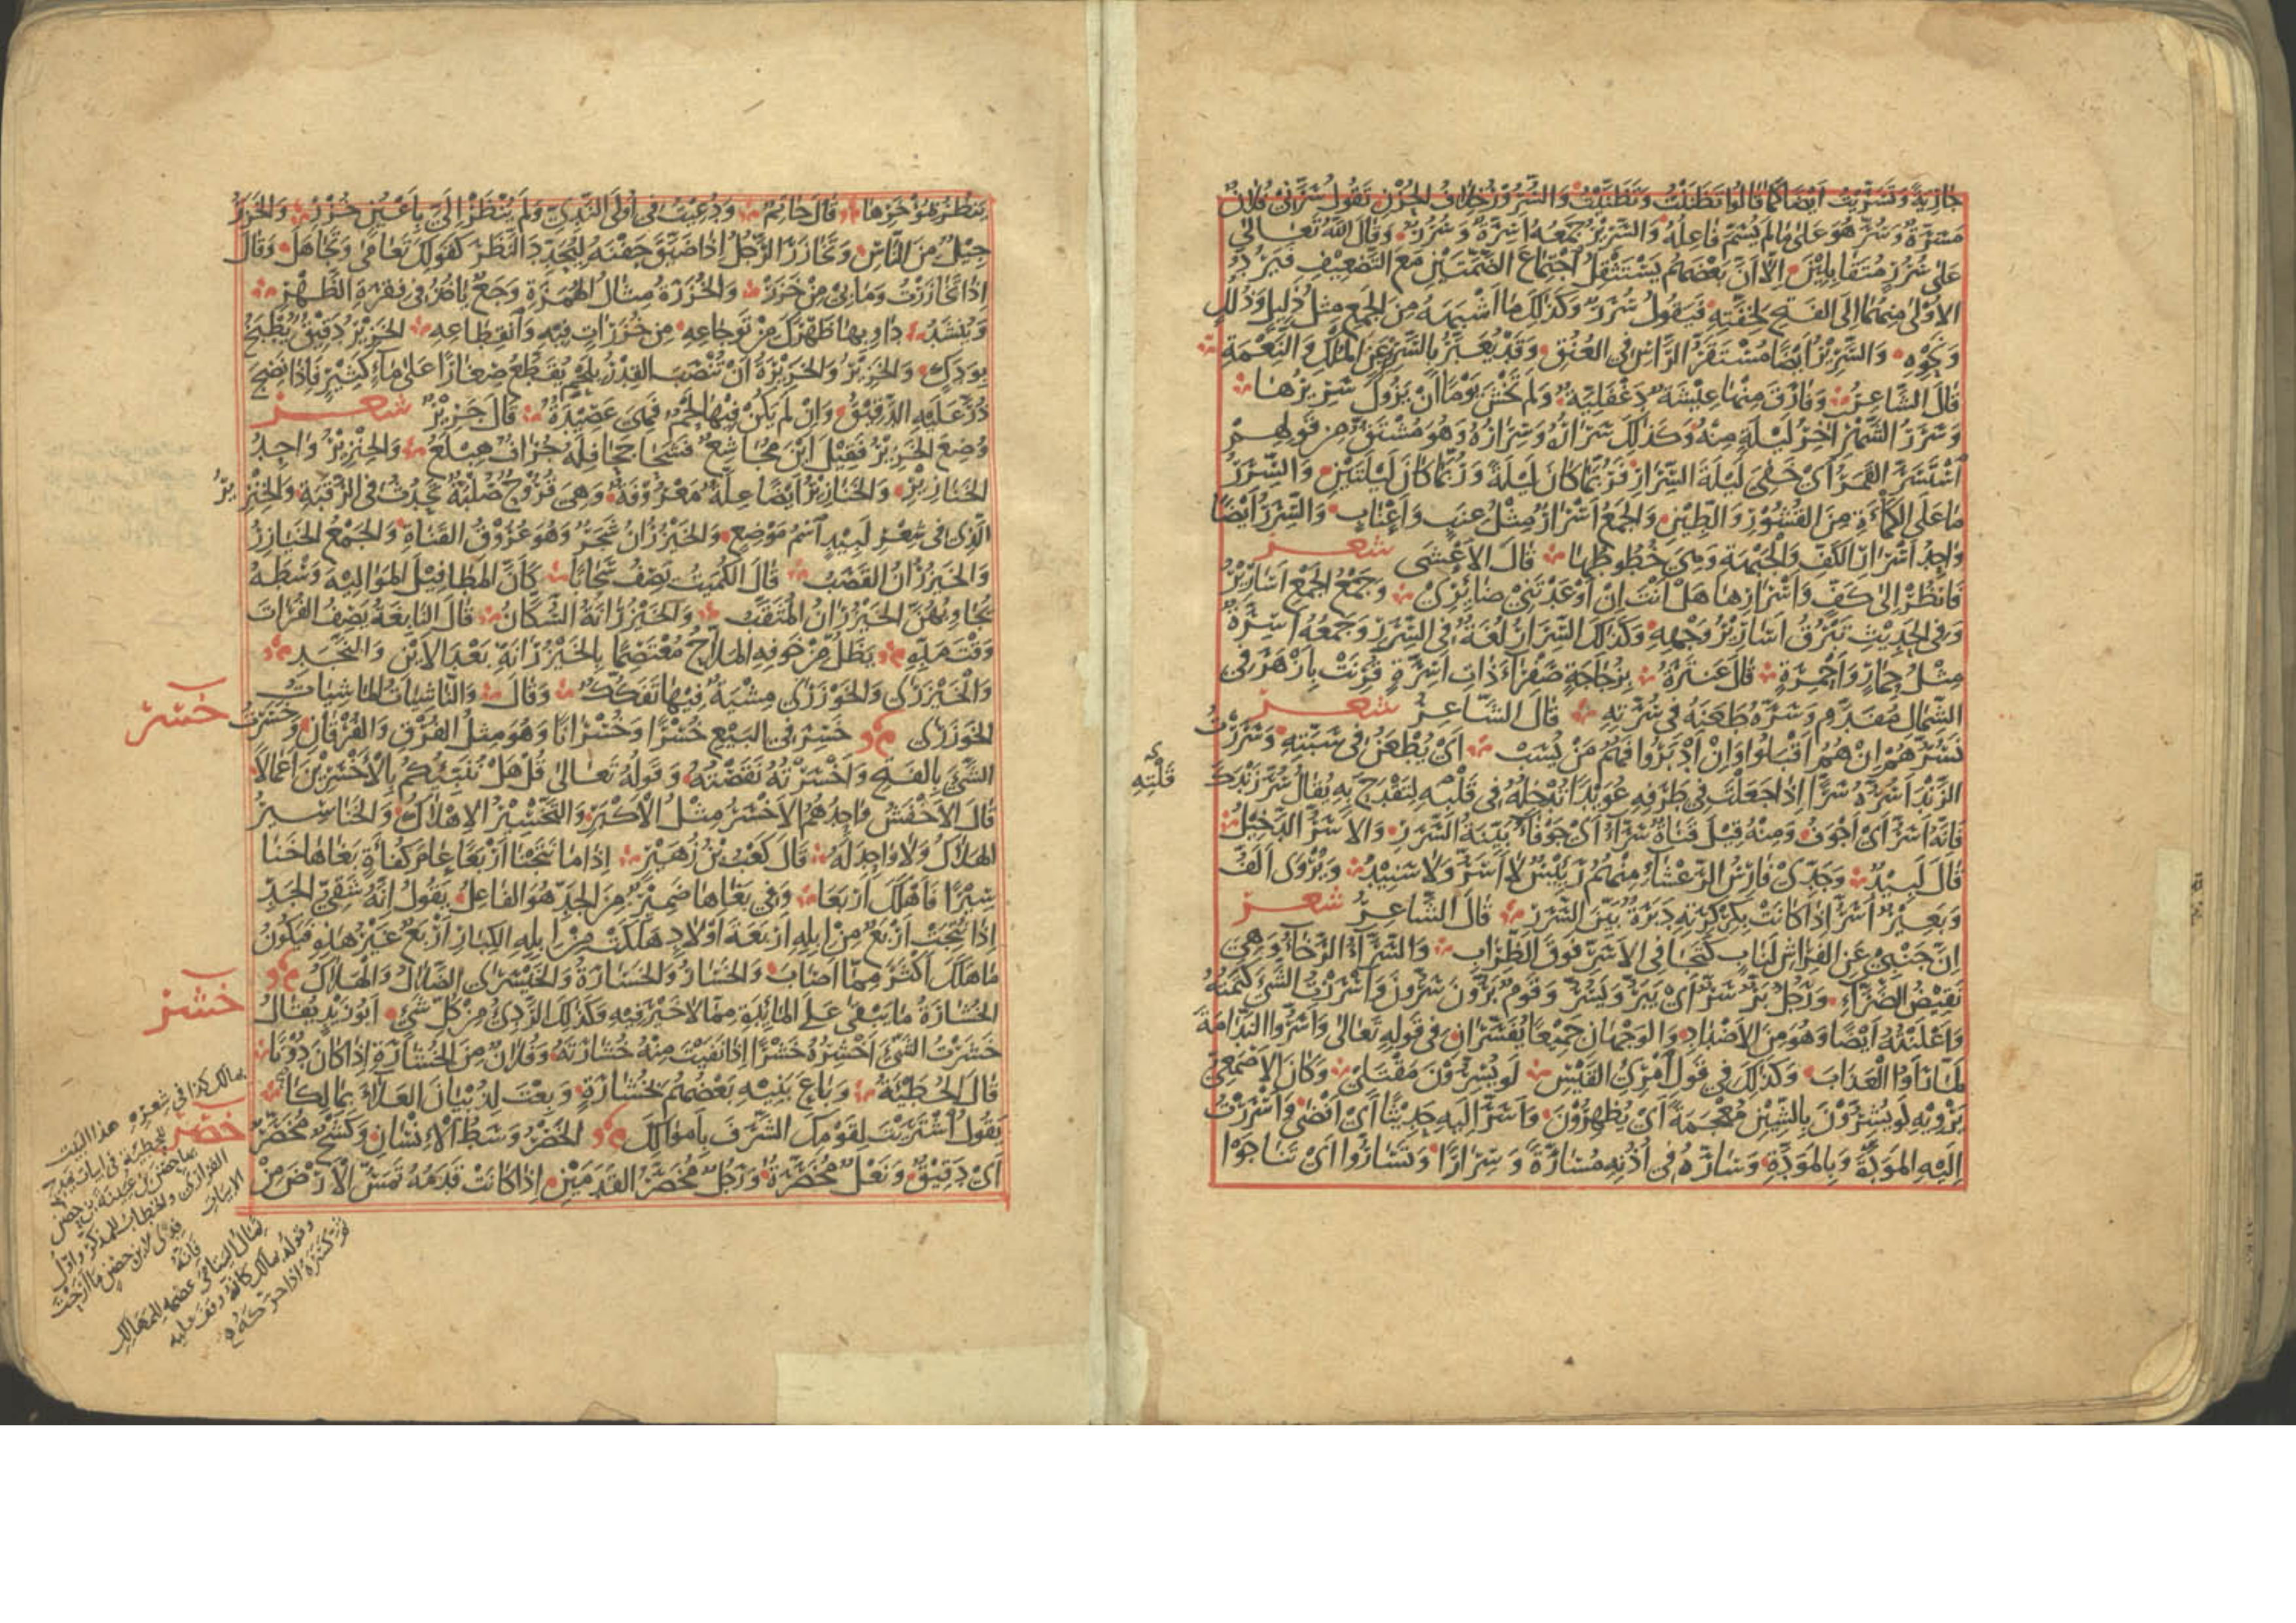 جَارِيَةً وَتَسَرَّيْتُ اَيْضًا كَمَا قَالُوا تَظَنَّنْتُ وَتَظَنَّيْتُ وَالسُّرُورُ خِلَافُ الحُزْنِ تَقُولُ سَرَّنِى فُلَانٌ
مَسَرَّةً وَسُرَّ هُوَ عَلَى مَا لَمْ يُسَمَّ فَاعِلُهُ وَالسَّرِيْرُ جَمْعُهُ اَسِرَّةٌ وَسُرُرٌ وَقَالَ اللّٰهُ تَعَالَى
عَلَى سُرُرٍ مُتَقَابِلِيْنَ اِلَّا اَنَّ بَعْضَهُمْ يَسْتَثْقِلُ اجْتِمَاعَ الضَّمَّتَيْنِ مَعَ التَّضْعِيْفِ فَيَرُدُّ
الاُوْلَى مِنْهُمَا اِلَى الفَتْحِ لِخِفَّتِهِ فَيَقُولُ سُرَرٌ وَكَذٰلِكَ مَا اَشْبَهَهُ مِنَ الجَمْعِ مِثْلُ ذَلِيْلٍ وَذُلُلٍ
وَنَحْوِهِ وَالسَّرِيْرُ اَيْضًا مُسْتَقَرُّ الرَّأْسِ فِى العُنُقِ وَقَدْ يُعَبَّرُ بِالسَّرِيْرِ عَنِ المُلْكِ وَالنِّعْمَةِ
قَالَ الشَّاعِرُ وَفَارَقَ مِنْهَا عِيْشَةً دَغْفَلِيَّةً وَلَمْ تَخْشَ يَوْمًا اَنْ يَزُولَ سَرِيْرُهَا
وَسَرَرُ الشَّهْرِ آخِرُ لَيْلَةٍ مِنْهُ وَكَذٰلِكَ سَرَارُهُ وَسِرَارُهُ وَهُوَ مُشْتَقٌّ مِنْ قَوْلِهِمْ
اسْتَسَرَّ القَمَرُ اَىْ خَفِىَ لَيْلَةَ السِّرَارِ فَرُبَّمَا كَانَ لَيْلَةً وَرُبَّمَا كَانَ لَيْلَتَيْنِ وَالسِّرَرُ
مَا عَلَى الكَمْأَةِ مِنَ القُشُوْرِ وَالطِّيْنِ وَالجَمْعُ اَسْرَارٌ مِثْلُ عِنَبٍ وَاَعْنَابٍ وَالسِّرَرُ اَيْضًا
وَاحِدُ اَسْرَارِ الكَفِّ وَالجَبْهَةِ وَهِىَ خُطُوطُهَا قَالَ الاَعْشَى شعر
فَانْظُرْ اِلَى كَفٍّ وَاَسْرَارِهَا هَلْ اَنْتَ اِنْ اَوْعَدْتَنِىْ ضَائِرِىْ وَجَمْعُ الجَمْعِ اَسَارِيْرُ
وَفِى الحَدِيْثِ تَبْرُقُ اَسَارِيْرُ وَجْهِهِ وَكَذٰلِكَ السِّرَارُ لُغَةٌ فِى السِّرَرِ وَجَمْعُهُ اَسِرَّةٌ
مِثْلُ حِمَارٍ وَاَحْمِرَةٍ قَالَ عَنْتَرَةُ بِزُجَاجَةٍ صَفْرَاءَ ذَاتِ اَسِرَّةٍ قُرِنَتْ بِاَزْهَرَ فِى
الشِّمَالِ مُفَدَّمِ وَسَرَّهُ طَعَنَهُ فِى سُرَّتِهِ قَالَ الشَّاعِرُ شعر
نَسُرُّهُمْ اِنْ هُمُ اَقْبَلُوا وَاِنْ اَدْبَرُوا فَهُمْ مَنْ نَسُبّ اَىْ يُطْعَنُ فِى سَبَّتِهِ وَسَرَرْتُ
الزَّنْدَ اَسُرُّهُ سَرًّا اِذَا جَعَلْتَ فِى طَرَفِهِ عُوَيْدًا تُدْخِلُهُ فِى قَلْبِهِ لِتَقْدَحَ بِهِ يُقَالُ سُرَّ زَنْدَكَ
قَلْتِهِ
فَاِنَّهُ اَسَرُّ اَىْ اَجْوَفُ وَمِنْهُ قِيْلَ قَنَاةٌ سَرَّاءُ اَىْ جَوْفَاءُ بَيِّنَةُ السَّرَرِ وَالاَسَرُّ الدَّخِيْلُ
قَالَ لَبِيْدٌ وَجَدِّىْ فَارِسُ الرَّعْشَاءِ مِنْهُمْ رَئِيْسٌ لَا اَسَرُّ وَلَا سَنِيْدُ وَيُرْوَى اَلَفُّ
وَبَعِيْرٌ اَسَرُّ اِذَا كَانَتْ بِكِرْكِرَتِهِ دَبَرَةٌ بَيِّنُ السَّرَرِ قَالَ الشَّاعِرُ شعر
اِنَّ جَنْبِىْ عَنِ الفِرَاشِ لَنَابِ كَتَجَافِى الاَسَرِّ فَوْقَ الظِّرَابِ وَالسَّرَّاءُ الرَّخَاءُ وَهِىَ
نَقِيْضُ الضَّرَّاءِ وَرَجُلٌ بَرٌّ سَرٌّ اَىْ يَبَرُّ وَيَسُرُّ وَقَوْمٌ بَرُّونَ سَرُّونَ وَاَسْرَرْتُ الشَّىْءَ كَتَمْتُهُ
وَاَعْلَنْتُهُ اَيْضًا وَهُوَ مِنَ الاَضْدَادِ وَالوَجْهَانِ جَمِيْعًا يُفَسَّرَانِ فِى قَوْلِهِ تَعَالَى وَاَسَرُّوا النَّدَامَةَ
لَمَّا رَاَوُا الْعَذَابَ وَكَذٰلِكَ فِى قَوْلِ امْرِئِ القَيْسِ لَوْ يُسِرُّوْنَ مَقْتَلِىْ وَكَانَ الاَصْمَعِىُّ
يَرْوِيْهِ لَوْ يُشِرُّوْنَ بِالشِّيْنِ مُعْجَمَةً اَىْ يُظْهِرُوْنَ وَاَسَرَّ اِلَيْهِ حَدِيْثًا اَىْ اَفْضَى وَاَسْرَرْتُ
اِلَيْهِ المَوَدَّةَ وَبِالمَوَدَّةِ وَسَارَّهُ فِى اُذُنِهِ مُسَارَّةً وَسِرَارًا وَتَسَارُّوا اَىْ تَنَاجَوْا
يَنْظُرُ هُوَ خَزَرَهَا قَالَ حَاتِمٌ وَدُعِيْتُ فِى اُولَى النَّدِىِّ وَلَمْ يُنْظَرْ اِلَىَّ بِاَعْيُنٍ خُزْرِ وَالخَزَرُ
جِيْلٌ مِنَ النَّاسِ وَتَخَازَرَ الرَّجُلُ اِذَا ضَيَّقَ جَفْنَهُ لِيُحَدِّدَ النَّظَرَ كَقَوْلِكَ تَعَامَى وَتَجَاهَلَ وَقَالَ
اِذَا تَخَازَرْتُ وَمَا بِىْ مِنْ خَزَرْ وَالخُزَرَةُ مِثَالُ الهُمَزَةِ وَجَعٌ يَأْخُذُ فِى فِقْرَةِ الظَّهْرِ
وَيُنْشَدُ دَاوِ بِهَا ظَهْرَكَ مِنْ تَوْجَاعِهِ مِنْ خُزَرَاتٍ فِيْهِ وَانْقِطَاعِهِ الخَزِيْرُ دَقِيْقٌ يُطْبَخُ
بِوَدَكٍ وَالخَزِيْرُ وَالخَزِيْرَةُ اَنْ تُنْصَبَ القِدْرُ بِلَحْمٍ يُقَطَّعُ صِغَارًا عَلَى مَاءٍ كَثِيْرٍ فَاِذَا نَضِجَ
ذُرَّ عَلَيْهِ الدَّقِيْقُ وَاِنْ لَمْ يَكُنْ فِيْهَا لَحْمٌ فَهِىَ عَصِيْدَةٌ قَالَ جَرِيْرٌ شعر
وُضِعَ الخَزِيْرُ فَقِيْلَ اَيْنَ مُجَاشِعٌ فَشَحَا جَحَافِلَهُ جُرَافٌ هِبْلَعُ وَالخِنْزِيْرُ وَاحِدُ
الخَنَازِيْرِ وَالخَنَازِيْرُ اَيْضًا عِلَّةٌ مَعْرُوْفَةٌ وَهِىَ قُرُوْحٌ صُلْبَةٌ تَحْدُثُ فِى الرَّقَبَةِ وَالخِنْزِيْرُ
الَّذِى فِى شِعْرِ لَبِيْدٍ اسْمُ مَوْضِعٍ وَالخَيْزُرَانُ شَجَرٌ وَهُوَ عُرُوْقُ القَنَاةِ وَالجَمْعُ الخَيَازِرُ
وَالخَيْزُرَانُ القَصَبُ قَالَ الكُمَيْتُ يَصِفُ سَحَابًا كَاَنَّ المَطَافِيْلَ المَوَالِيْهَ وَسْطَهُ
يُجَاوِبُهُنَّ الخَيْزُرَانُ المُثَقَّبُ وَالخَيْزُرَانَةُ السُّكَّانُ قَالَ النَّابِغَةُ يَصِفُ الفُرَاتَ
وَقْتَ مَدِّهِ يَظَلُّ مِنْ خَوْفِهِ المَلَّاحُ مُعْتَصِمًا بِالخَيْزُرَانَةِ بَعْدَ الاَيْنِ وَالنَّجَدِ
وَالخَيْزَرَى وَالخَوْزَرَى مِشْيَةٌ فِيْهَا تَفَكُّكٌ وَقَالَ وَالنَّاشِيَاتُ المَاشِيَاتُ
خسر
الخَوْزَرَى خَسِرَ فِى البَيْعِ خُسْرًا وَخُسْرَانًا وَهُوَ مِثْلُ الفُرْقِ وَالفُرْقَانِ وَخَسَرْتُ
الشَّىْءَ بِالفَتْحِ وَاَخْسَرْتُهُ نَقَصْتُهُ وَقَوْلُهُ تَعَالَى قُلْ هَلْ نُنَبِّئُكُمْ بِالْاَخْسَرِيْنَ اَعْمَالًا
قَالَ الاَخْفَشُ وَاحِدُهُمُ الاَخْسَرُ مِثْلُ الاَكْبَرِ وَالتَّخْسِيْرُ الاِهْلَاكُ وَالخَنَاسِيْرُ
الهَلَاكُ وَلَا وَاحِدَ لَهُ قَالَ كَعْبُ بْنُ زُهَيْرٍ اِذَا مَا نُتِجْنَا اَرْبَعًا عَامَ كُفْأَةٍ بَغَاهَا خَنَا
سِيْرًا فَاَهْلَكَ اَرْبَعَا وَفِى بَغَاهَا ضَمِيْرٌ مِنَ الجَدِّ هُوَ الفَاعِلُ يَقُولُ اِنَّهُ شَقِىُّ الجَدِّ
اِذَا نُتِجَتْ اَرْبَعٌ مِنْ اِبِلِهِ اَرْبَعَةَ اَوْلَادٍ هَلَكَتْ مِنْ اِبِلِهِ الكِبَارِ اَرْبَعٌ غَيْرُ هٰذِهِ فَيَكُوْنُ
مَا هَلَكَ اَكْثَرَ مِمَّا اَصَابَ وَالخَسَارُ وَالخَسَارَةُ وَالخَيْسَرَى الضَّلَالُ وَالهَلَاكُ
خشر
الخُشَارَةُ مَا يَبْقَى عَلَى المَائِدَةِ مِمَّا لَا خَيْرَ فِيْهِ وَكَذٰلِكَ الرَّدِىُّ مِنْ كُلِّ شَىْءٍ اَبُو زَيْدٍ يُقَالُ
خَشَرْتُ الشَّىْءَ اَخْشِرُهُ خَشْرًا اِذَا نَقَّيْتَ مِنْهُ خُشَارَتَهُ وَفُلَانٌ مِنَ الخُشَارَةِ اِذَا كَانَ دُوْنًا
قَالَ الحُطَيْئَةُ وَبَاعَ بَنِيْهِ بَعْضُهُمْ بِخُشَارَةٍ وَبِعْتَ لِذُبْيَانَ العَلَاءَ بِمَالِكَا
خصر
يَقُولُ اشْتَرَيْتَ لِقَوْمِكَ الشَّرَفَ بِاَمْوَالِكَ الخَصْرُ وَسَطُ الاِنْسَانِ وَكَشْحٌ مُخَصَّرٌ
اَىْ دَقِيْقٌ وَنَعْلٌ مُخَصَّرَةٌ وَرَجُلٌ مُخَصَّرُ القَدَمَيْنِ اِذَا كَانَتْ قَدَمُهُ تَمَسُّ الاَرْضَ مِنْ
بمالك كذا فى شعره هذا البيت
للحطيئة فى ابيات يمدح
بها حصن بن عيينة بن حصن
الفزارى والخطاب للمذكر واول
الابيات فدى لابن حصن ما ارحت
فانه
ثمال اليتامى عصمة للمهالك
وقوله بمالك كانه وقف عليه
ثم كسره اذا حركه